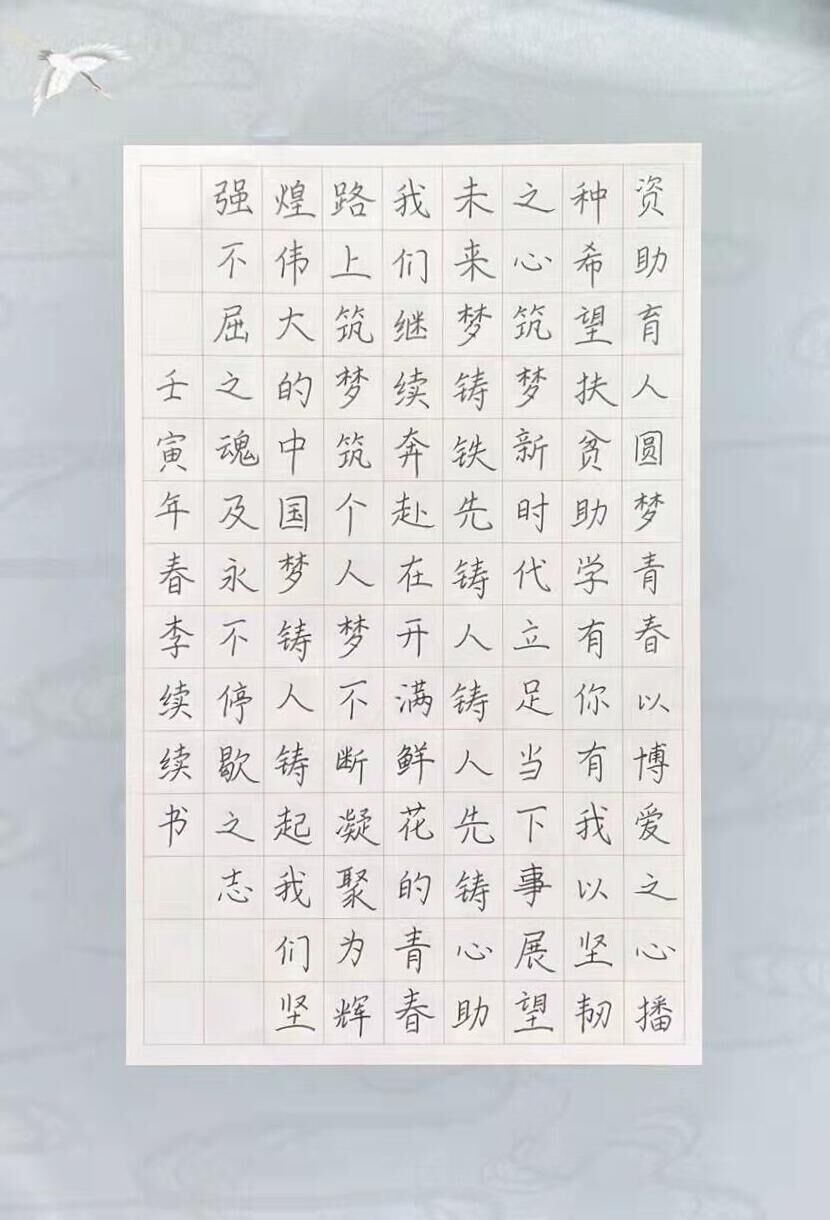 资助育人圆梦青春以博爱之心播
种希望扶贫助学有你有我以坚韧
之心筑梦新时代立足当下事展望
未来梦铸铁先铸人铸人先铸心助
我们继续奔赴在开满鲜花的青春
路上筑梦筑个人梦不断凝聚为辉
煌伟大的中国梦铸人铸起我们坚
强不屈之魂及永不停歇之志
壬寅年春李续续书